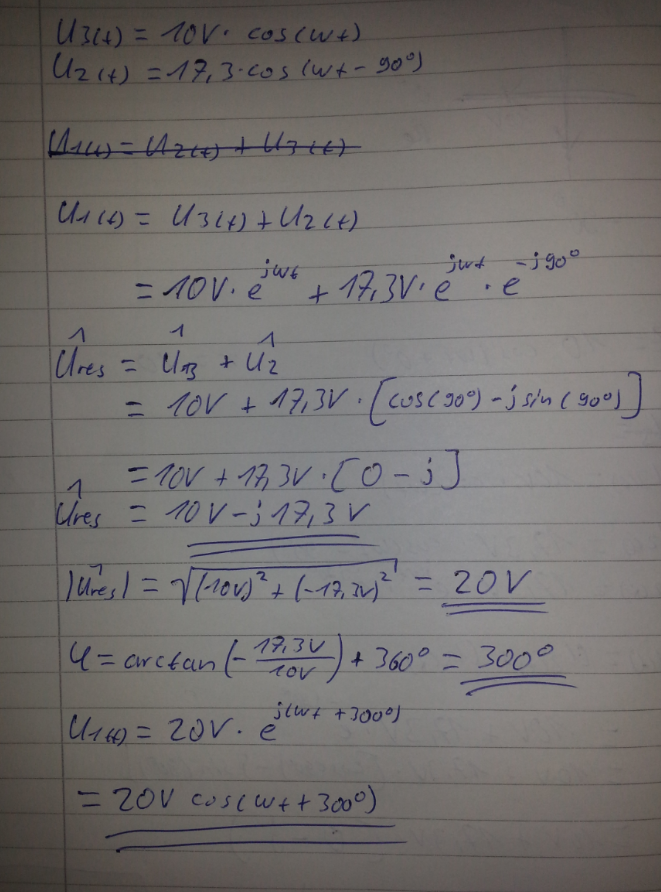 U3(t) = 10V · cos(ωt)
U2(t) = 17,3 · cos(ωt - 90°)
U1(t) = U2(t) + U3(t)
U1(t) = U3(t) + U2(t)
= 10V · e^jωt + 17,3V · e^jωt · e^-j90°
Ûres = Û13 + Û2
= 10V + 17,3V · [cos(90°) - j sin(90°)]
= 10V + 17,3V · [0 - j]
Ûres = 10V - j 17,3V
|Ûres| = √((10V)² + (-17,3V)²) = 20V
φ = arctan(-17,3V/10V) + 360° = 300°
U1(t) = 20V · e^j(ωt + 300°)
= 20V cos(ωt + 300°)